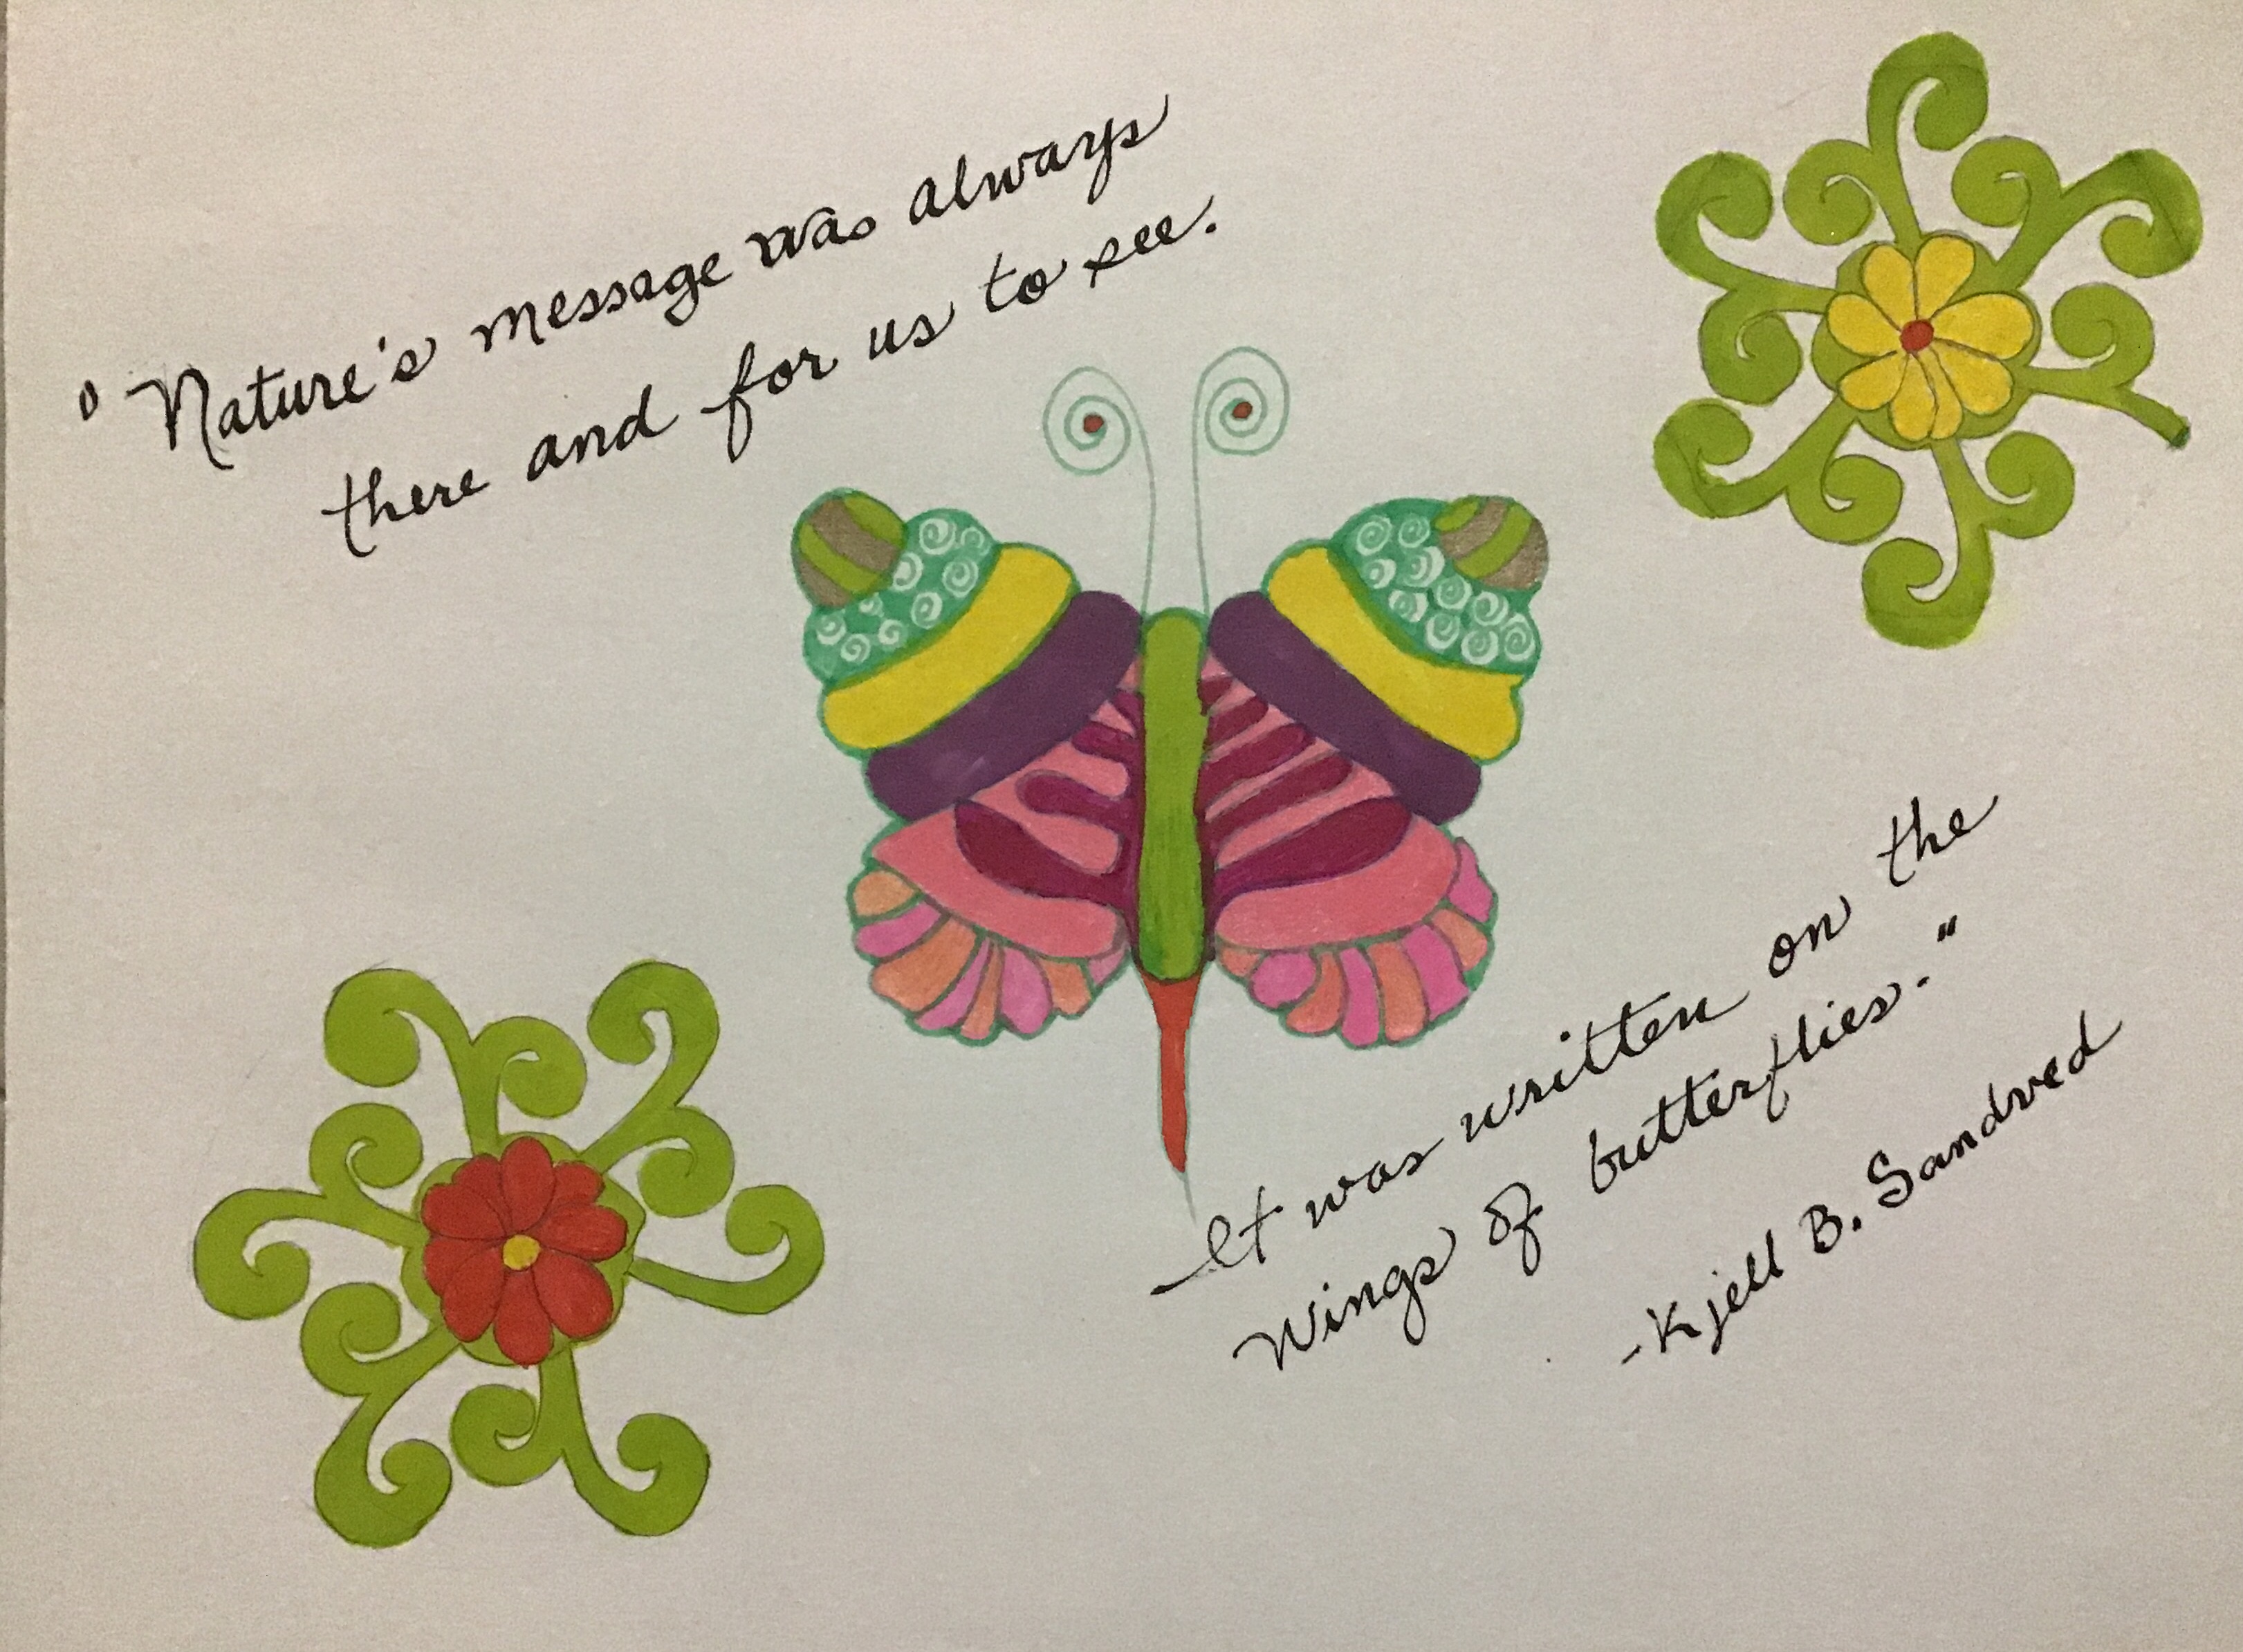 "Nature's message was always
there and for us to see.
It was written on the
wings of butterflies."
-Kjell B. Sandved